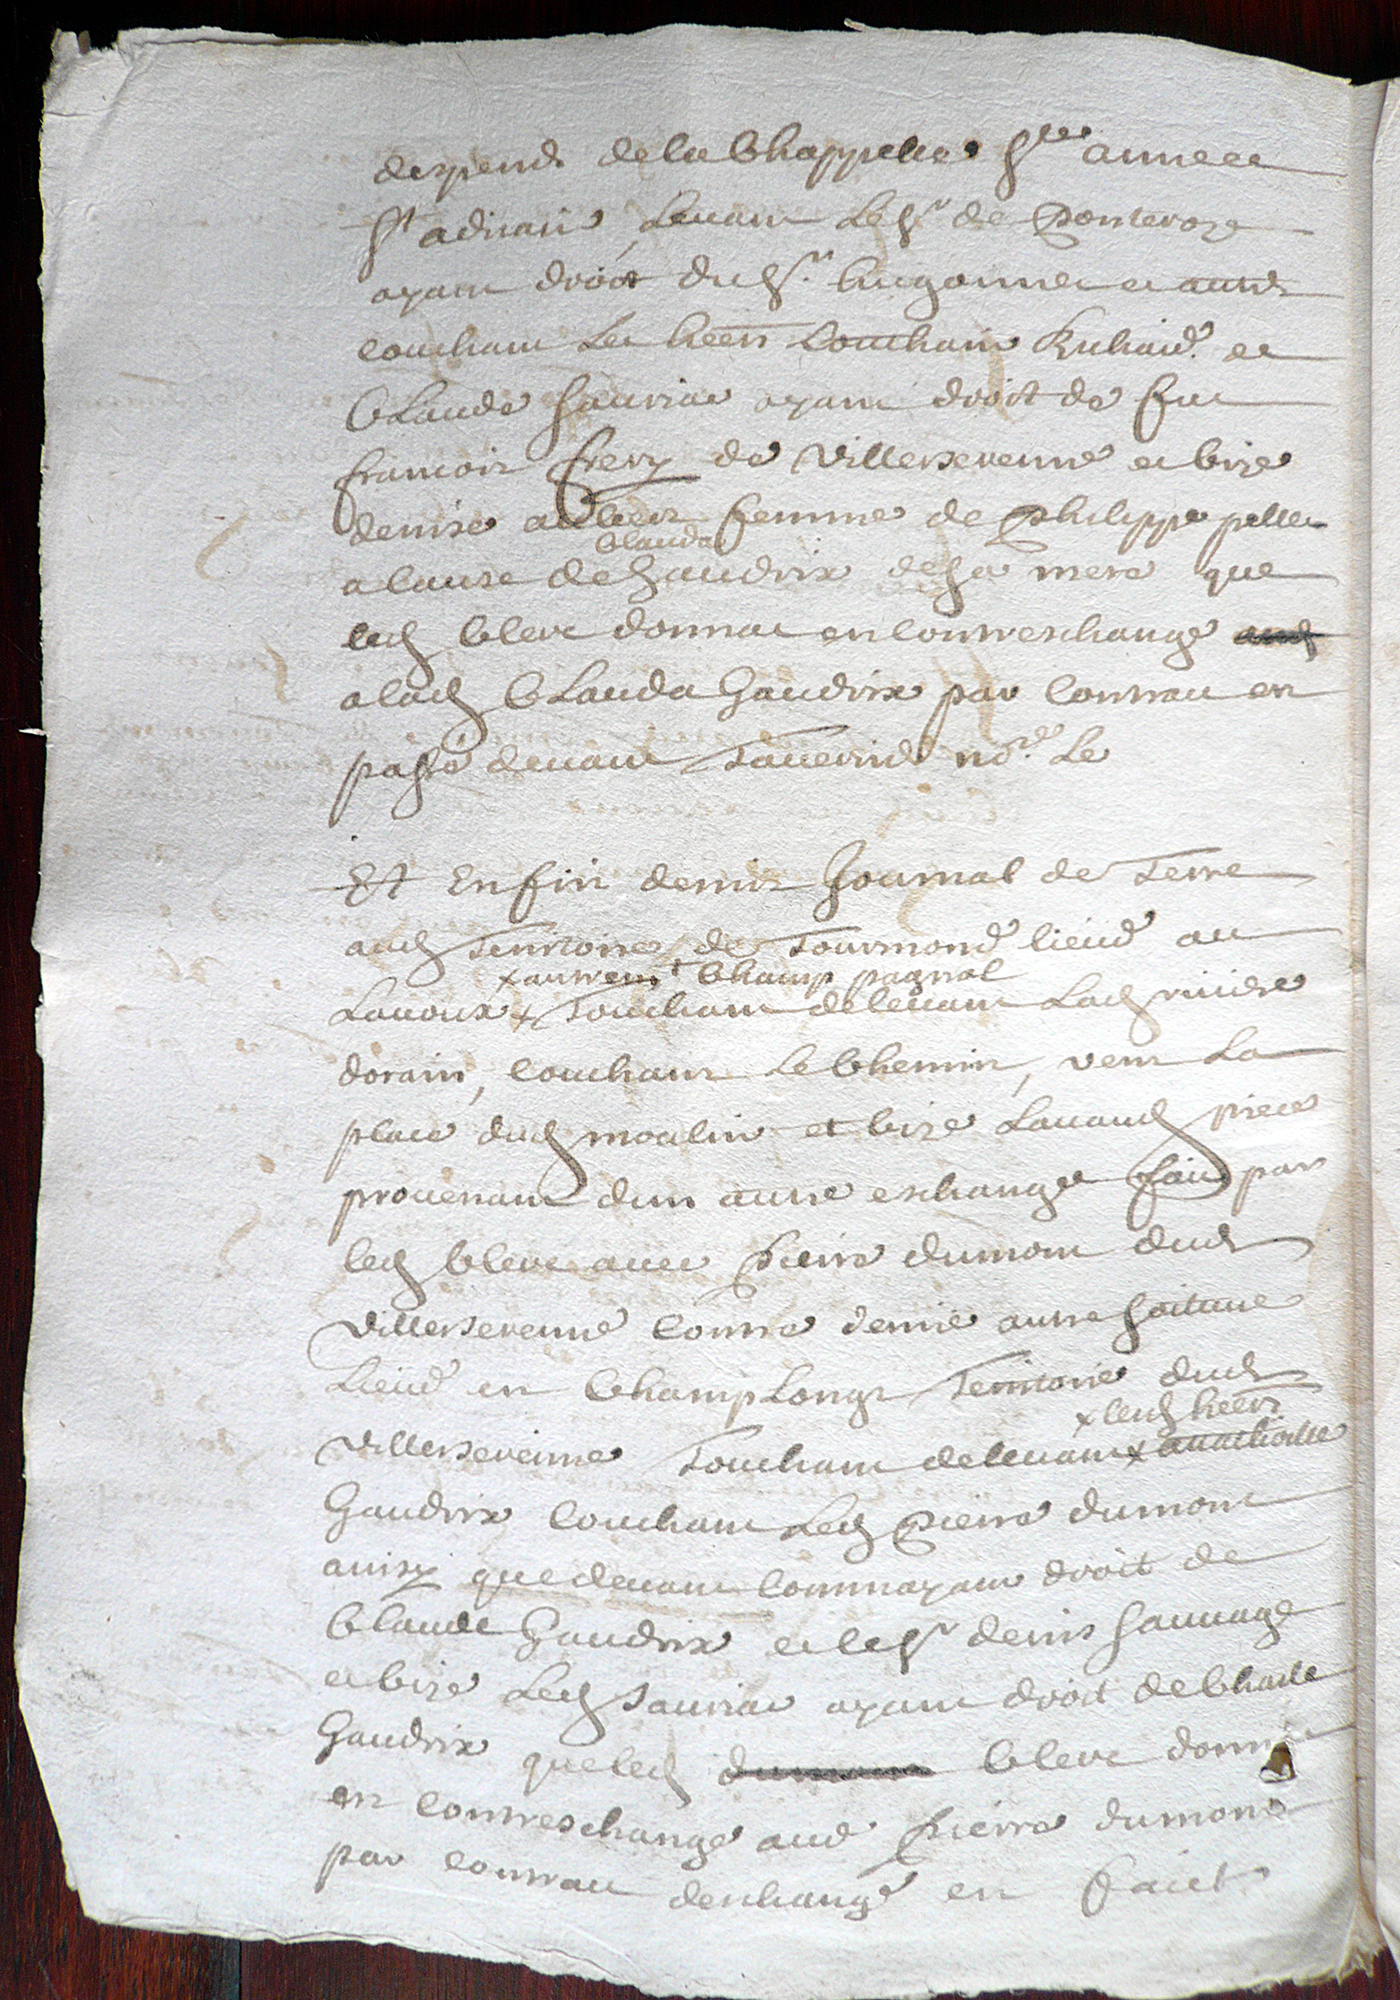 despend de la Chappelle Ste anne et
St adrian, Levant Le Sr de Ponteroze
ayant droit du Sr hugonnet et autres
couchant Les heers Couchant Richard et
Claude Sauriat ayant droit de fut
francois frery de Villerserenne et bize
denise au Clerc femme de Philippe pelle
Clauda
a cause de Gaudrix de sa mere que
led Clerc donnat en contreschange aud
a lad Clauda Gaudrix par Contract en
passé devant Tavernid nore Le
Et Enfin demis Journal de Terre
aud Territoire de Tourmond lieud au
x autremt Champ pagnol
Lavoux x Touchant de levant Lad riviere
dorain, couchant Le Chemin, vent La
place dud moulin et bize Lavand piece
provenant dun autre eschange fait par
led Clerc avec Pierre dumont dud
Villerserenne Contre demie autre Soiture
Lieud en Champ Longs Territoire dud
x lesd heers
Villerserenne Touchant de levant x
Gaudrix Couchant Led Pierre dumont
ainsy que devant comme ayant droit de
Claude Gaudrix et le Sr denis Sauvage
et bize Led Sauriat ayant droit de Charle
Gaudrix que led dumont Clerc donna
en Contreschange aud Pierre dumont
par Contract deschange en fait